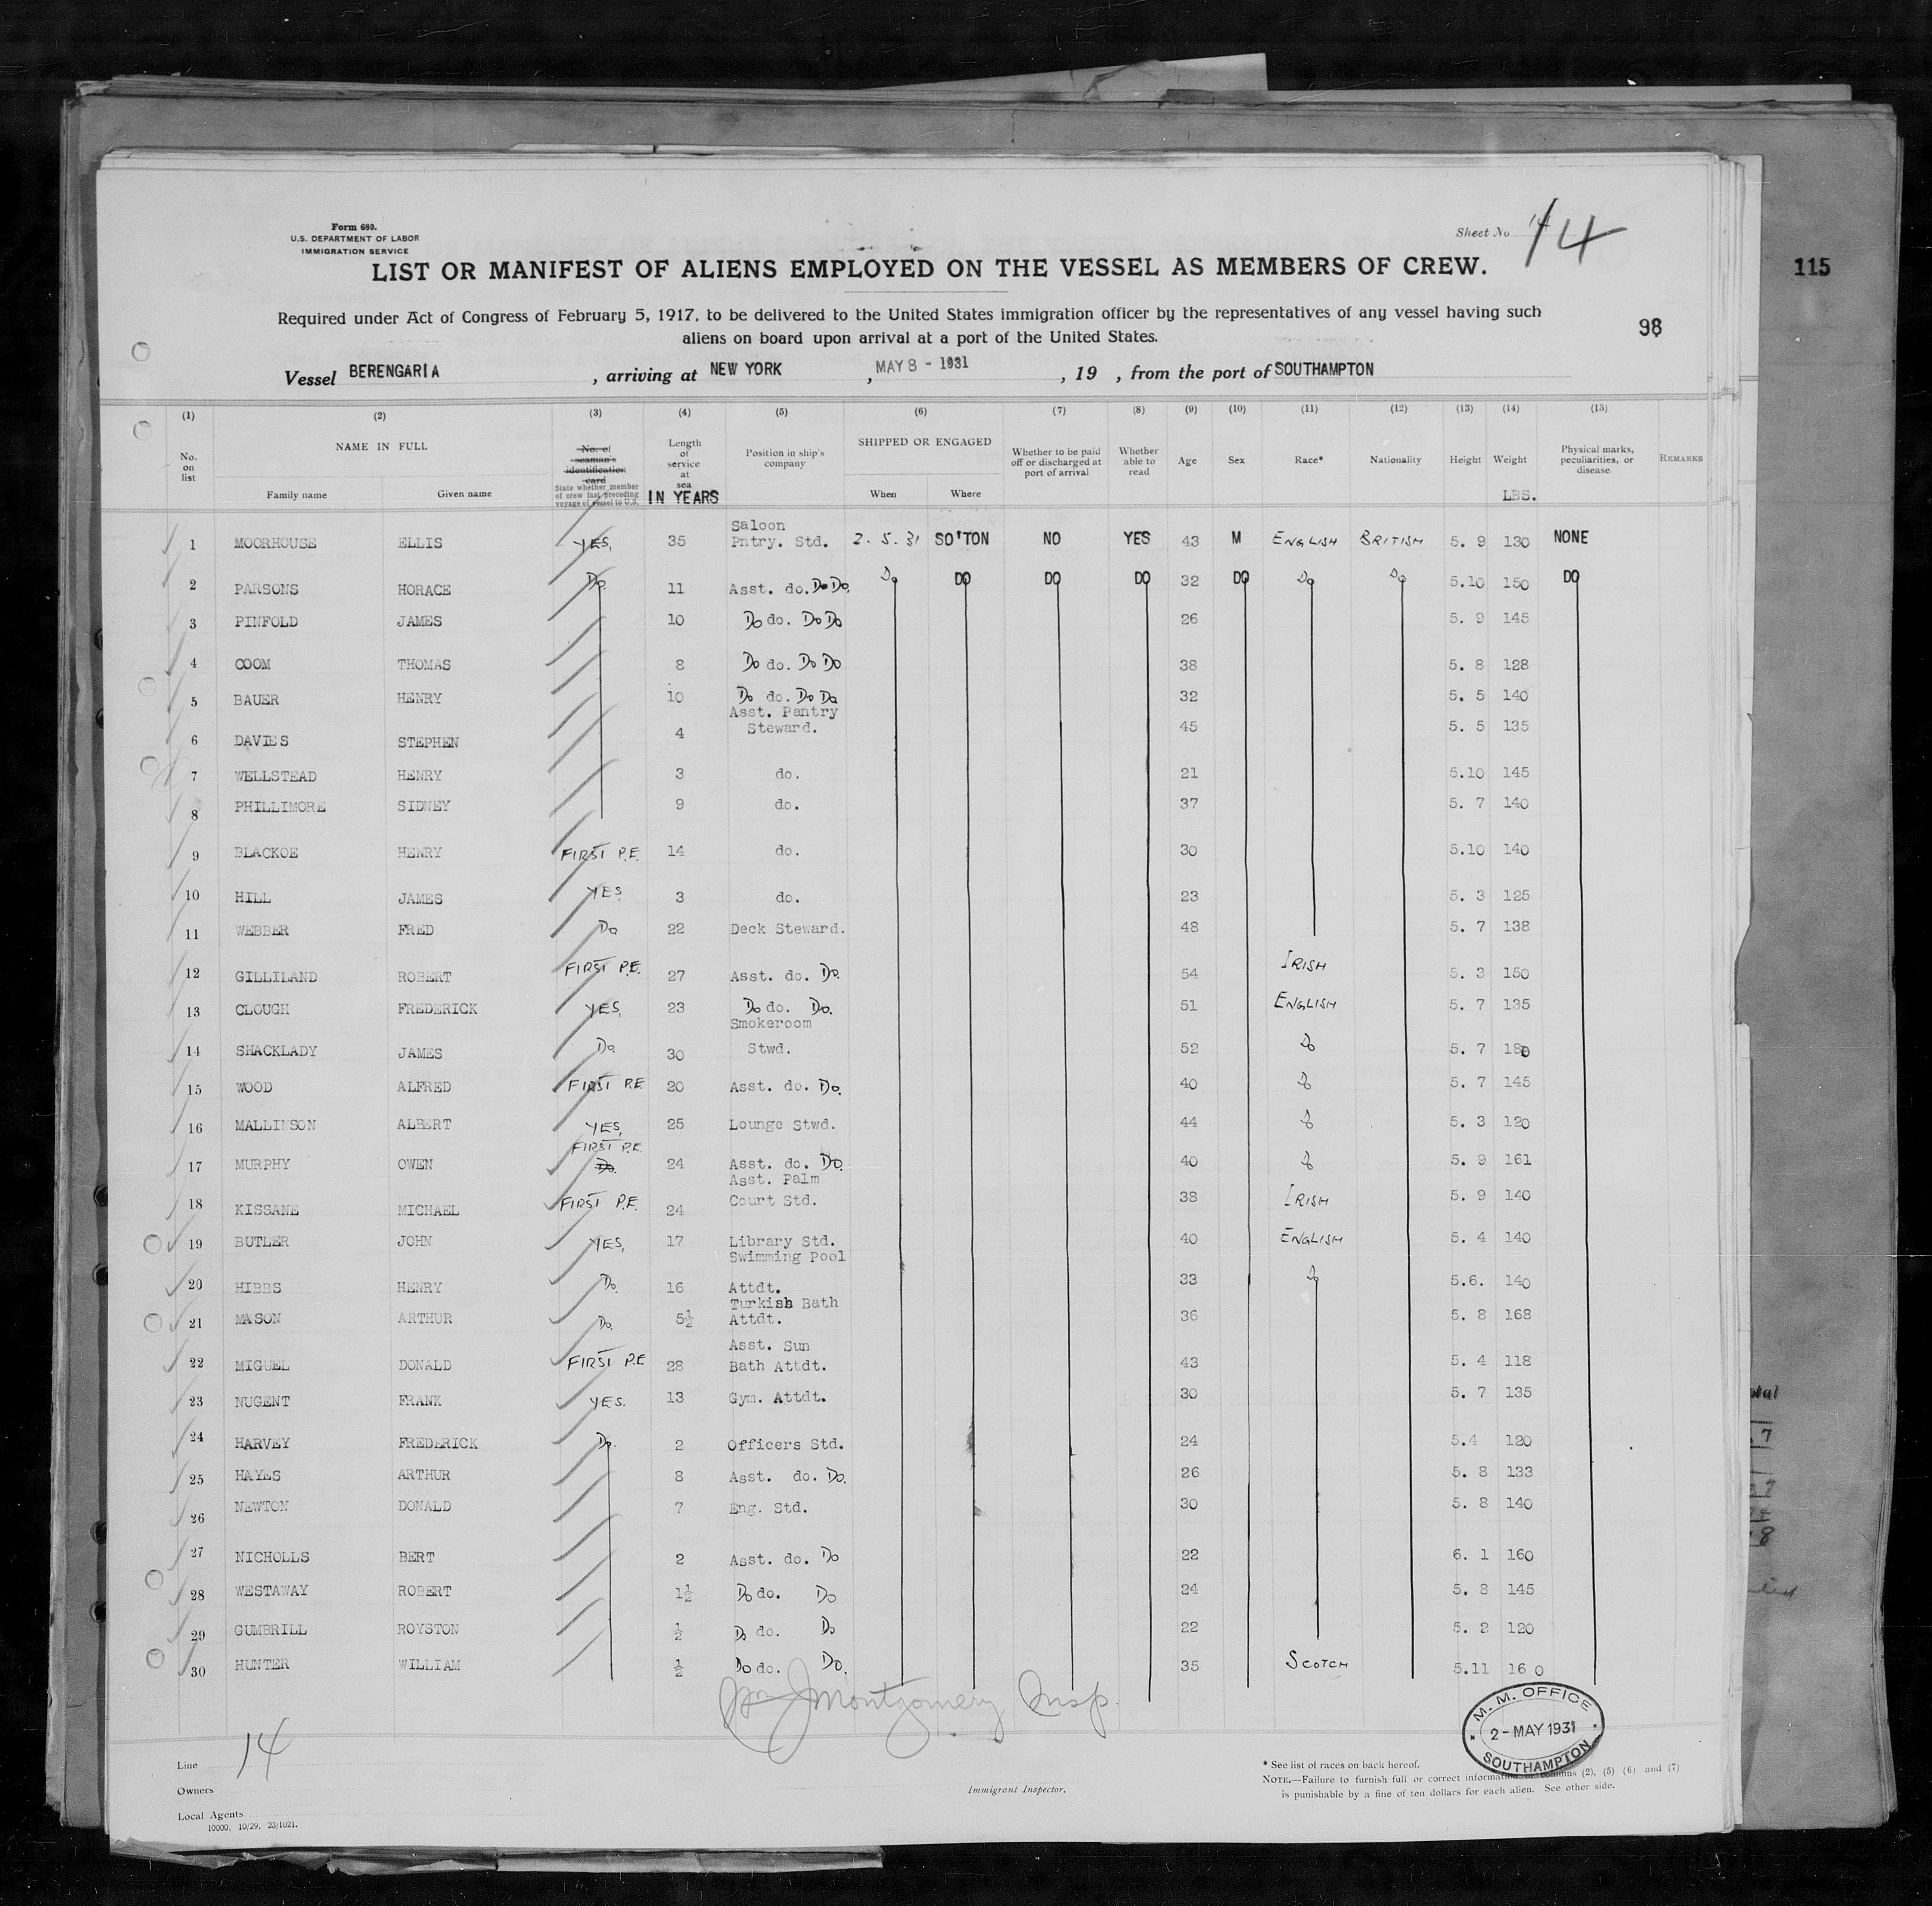 Form 680.
U.S. DEPARTMENT OF LABOR
IMMIGRATION SERVICE
Sheet No 14
LIST OR MANIFEST OF ALIENS EMPLOYED ON THE VESSEL AS MEMBERS OF CREW.
115
Required under Act of Congress of February 5, 1917, to be delivered to the United States immigration officer by the representatives of any vessel having such
aliens on board upon arrival at a port of the United States.
98
Vessel BERENGARIA , arriving at NEW YORK , MAY 8 - 1931 , 19 , from the port of SOUTHAMPTON
(1) (2) (3) (4) (5) (6) (7) (8) (9) (10) (11) (12) (13) (14) (15)
No. on list NAME IN FULL Family name Given name No. of seaman's identification card State whether member of crew last preceding voyage of vessel to U.S. Length of service at sea IN YEARS Position in ship's company SHIPPED OR ENGAGED When Where Whether to be paid off or discharged at port of arrival Whether able to read Age Sex Race* Nationality Height Weight LBS. Physical marks, peculiarities, or disease REMARKS
1 MOORHOUSE ELLIS YES, 35 Saloon Pntry. Std. 2. 5. 31 SO'TON NO YES 43 M ENGLISH BRITISH 5. 9 130 NONE
2 PARSONS HORACE Do. 11 Asst. do. Do Do. Do DO DO DO 32 DO Do Do 5.10 150 DO
3 PINFOLD JAMES 10 Do do. Do Do 26 5. 9 145
4 COOM THOMAS 8 Do do. Do Do 38 5. 8 128
5 BAUER HENRY 10 Do do. Do Do 32 5. 5 140
6 DAVIES STEPHEN 4 Asst. Pantry Steward. 45 5. 5 135
7 WELLSTEAD HENRY 3 do. 21 5.10 145
8 PHILLIMORE SIDNEY 9 do. 37 5. 7 140
9 BLACKOE HENRY FIRST P.E. 14 do. 30 5.10 140
10 HILL JAMES YES 3 do. 23 5. 3 125
11 WEBBER FRED Do 22 Deck Steward. 48 5. 7 138
12 GILLILAND ROBERT FIRST P.E. 27 Asst. do. Do. 54 IRISH 5. 3 150
13 CLOUGH FREDERICK YES, 23 Do do. Do. 51 ENGLISH 5. 7 135
14 SHACKLADY JAMES Do 30 Smokeroom Stwd. 52 Do 5. 7 180
15 WOOD ALFRED FIRST P.E 20 Asst. do. Do. 40 Do 5. 7 145
16 MALLINSON ALBERT YES, 25 Lounge Stwd. 44 Do 5. 3 120
17 MURPHY OWEN FIRST P.E. Do. 24 Asst. do. Do. 40 Do 5. 9 161
18 KISSANE MICHAEL FIRST P.E. 24 Asst. Palm Court Std. 38 IRISH 5. 9 140
19 BUTLER JOHN YES, 17 Library Std. 40 ENGLISH 5. 4 140
20 HIBBS HENRY Do. 16 Swimming Pool Attdt. 33 Do 5.6. 140
21 MASON ARTHUR Do. 5½ Turkish Bath Attdt. 36 5. 8 168
22 MIGUEL DONALD FIRST P.E 28 Asst. Sun Bath Attdt. 43 5. 4 118
23 NUGENT FRANK YES. 13 Gym. Attdt. 30 5. 7 135
24 HARVEY FREDERICK Do. 2 Officers Std. 24 5.4 120
25 HAYES ARTHUR 8 Asst. do. Do. 26 5. 8 133
26 NEWTON DONALD 7 Eng. Std. 30 5. 8 140
27 NICHOLLS BERT 2 Asst. do. Do 22 6. 1 160
28 WESTAWAY ROBERT 1½ Do do. Do 24 5. 8 145
29 GUMBRILL ROYSTON ½ Do do. Do 22 5. 2 120
30 HUNTER WILLIAM ½ Do do. Do. 35 SCOTCH 5.11 160
Wm J Montgomery Insp.
M. M. OFFICE
2 - MAY 1931
SOUTHAMPTON
14
Line
Owners
Local Agents
10000. 10/29. 23/1021.
Immigrant Inspector.
* See list of races on back hereof.
NOTE.—Failure to furnish full or correct information in columns (2), (5) (6) and (7)
is punishable by a fine of ten dollars for each alien. See other side.